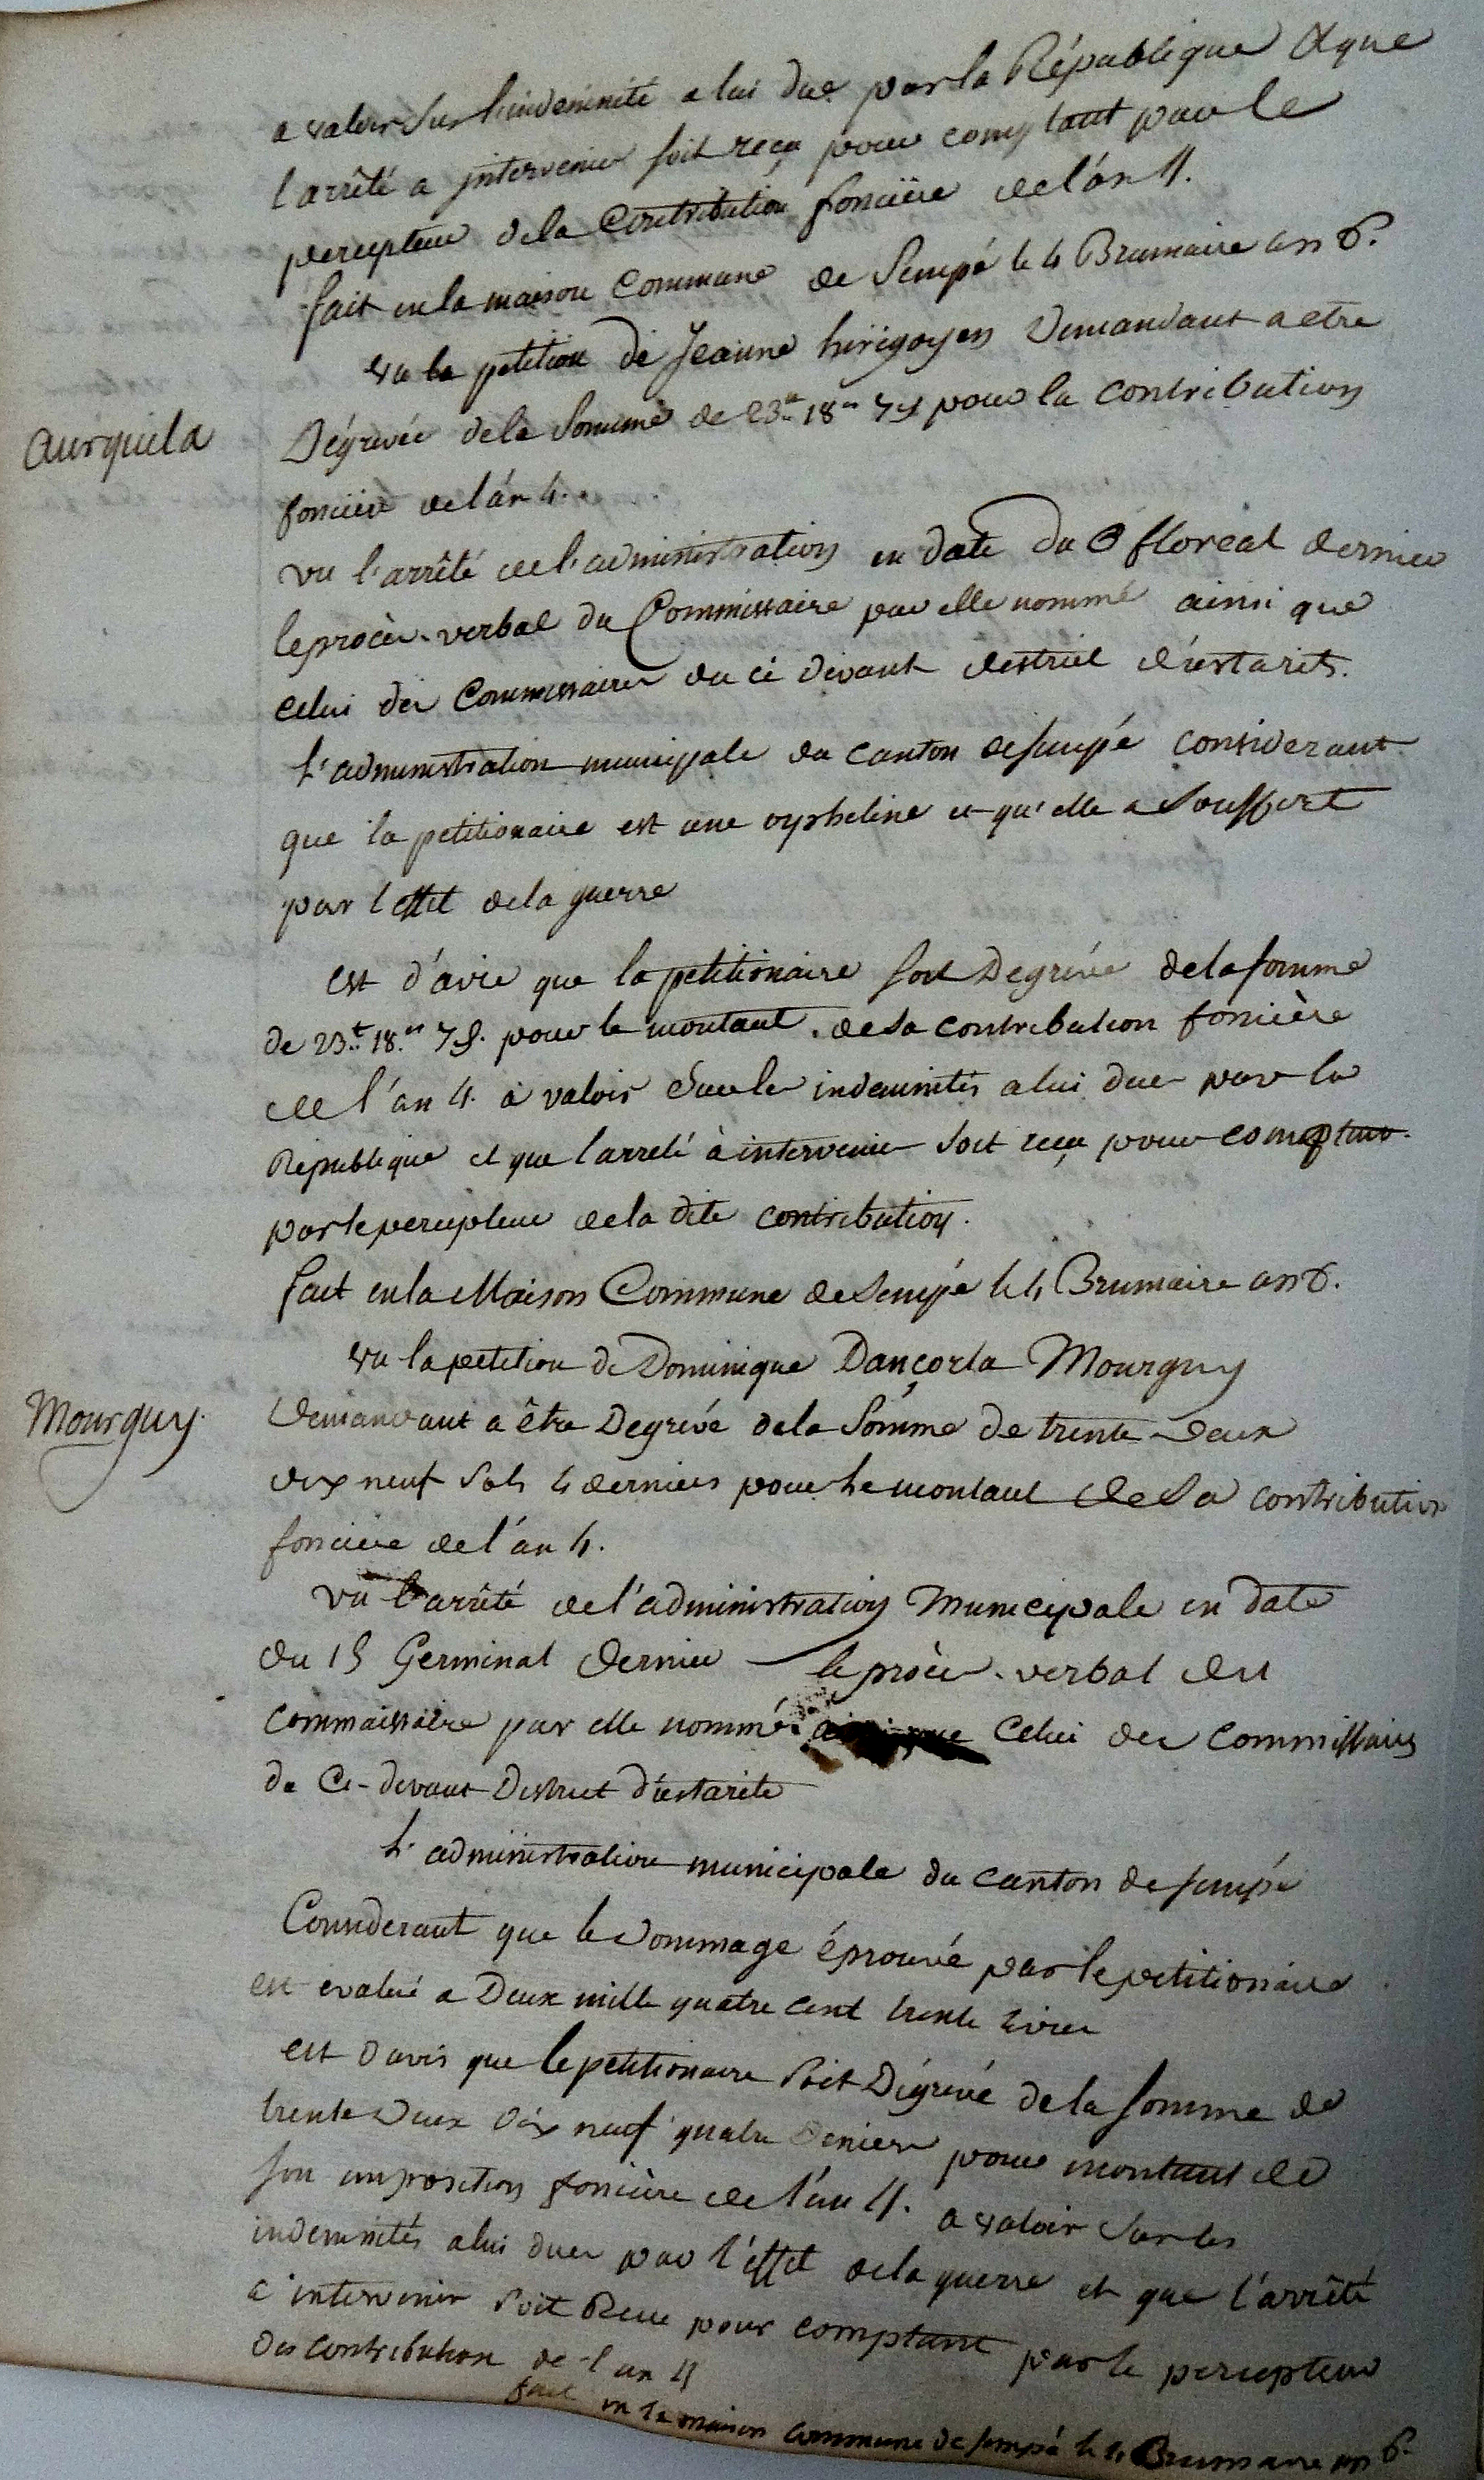 a valoir sur l'indemnité a lui due par la République & que
l'arrêté a intervenir soit reçu pour comptant par le
percepteur de la Contribution foncière de l'an 4.
fait en la maison Commune de Jempé le 4 Brumaire an 6.
vu la petition de Jeanne hirigoyen Demandant a etre
aurquila
Dégrevée de la Somme de 23.tt 18.s 7 d pour la contribution
foncière de l'an 4.
vu l'arrêté de l'administration en date du 8 floreal dernier
le procès-verbal du Commissaire par elle nommé ainsi que
celui des Commissaires du ci devant destrict d'ustarits.
L'administration municipale du canton de Jempé considerant
que la petitionaire est une orpheline et qu'elle a Souffert
par l'effet de la guerre
est d'avis que la petitionaire soit Degrévée de la somme
de 23.tt 18.s 7 d. pour le montant de sa contribution foncière
de l'an 4. à valoir Sur les indemnités a lui dues par la
République et que l'arreté à intervenir soit reçu pour comptant
par le percepteur de la dite contribution.
fait en la Maison Commune de Jempé le 4 Brumaire an 6.
vu la petition de Dominique Dançorla Mourguy
Mourguy.
Demandant a être Degrévé de la Somme de trente-Deux
dix neuf Sols 4 derniers pour le montant de Sa contribution
foncière de l'an 4.
vu l'arrêté de l'administration Municipale en date
du 15 Germinal Dernier le procès-verbal du
commaissaire par elle nommé ainsi que Celui des Commissaires
du Ci-devant District d'ustarits
L'administration municipale du canton de Jempé
Considerant que le Dommage éprouvé par le petitionaire
est evalué a Deux mille quatre cent trente livres
est Davis que le petitionaire Soit Dégrevé de la somme de
trente Deux Dix neuf quatre Deniers pour montant de
son imposition foncière de l'an 4. a valoir Sur les
indemnités a lui dues par l'effet de la guerre et que l'arrêté
a intervenir Soit Reçu pour comptant par le percepteur
Des contribution de l'an 4
fait en la maison Commune de Jempé le 4 Brumaire an 6.